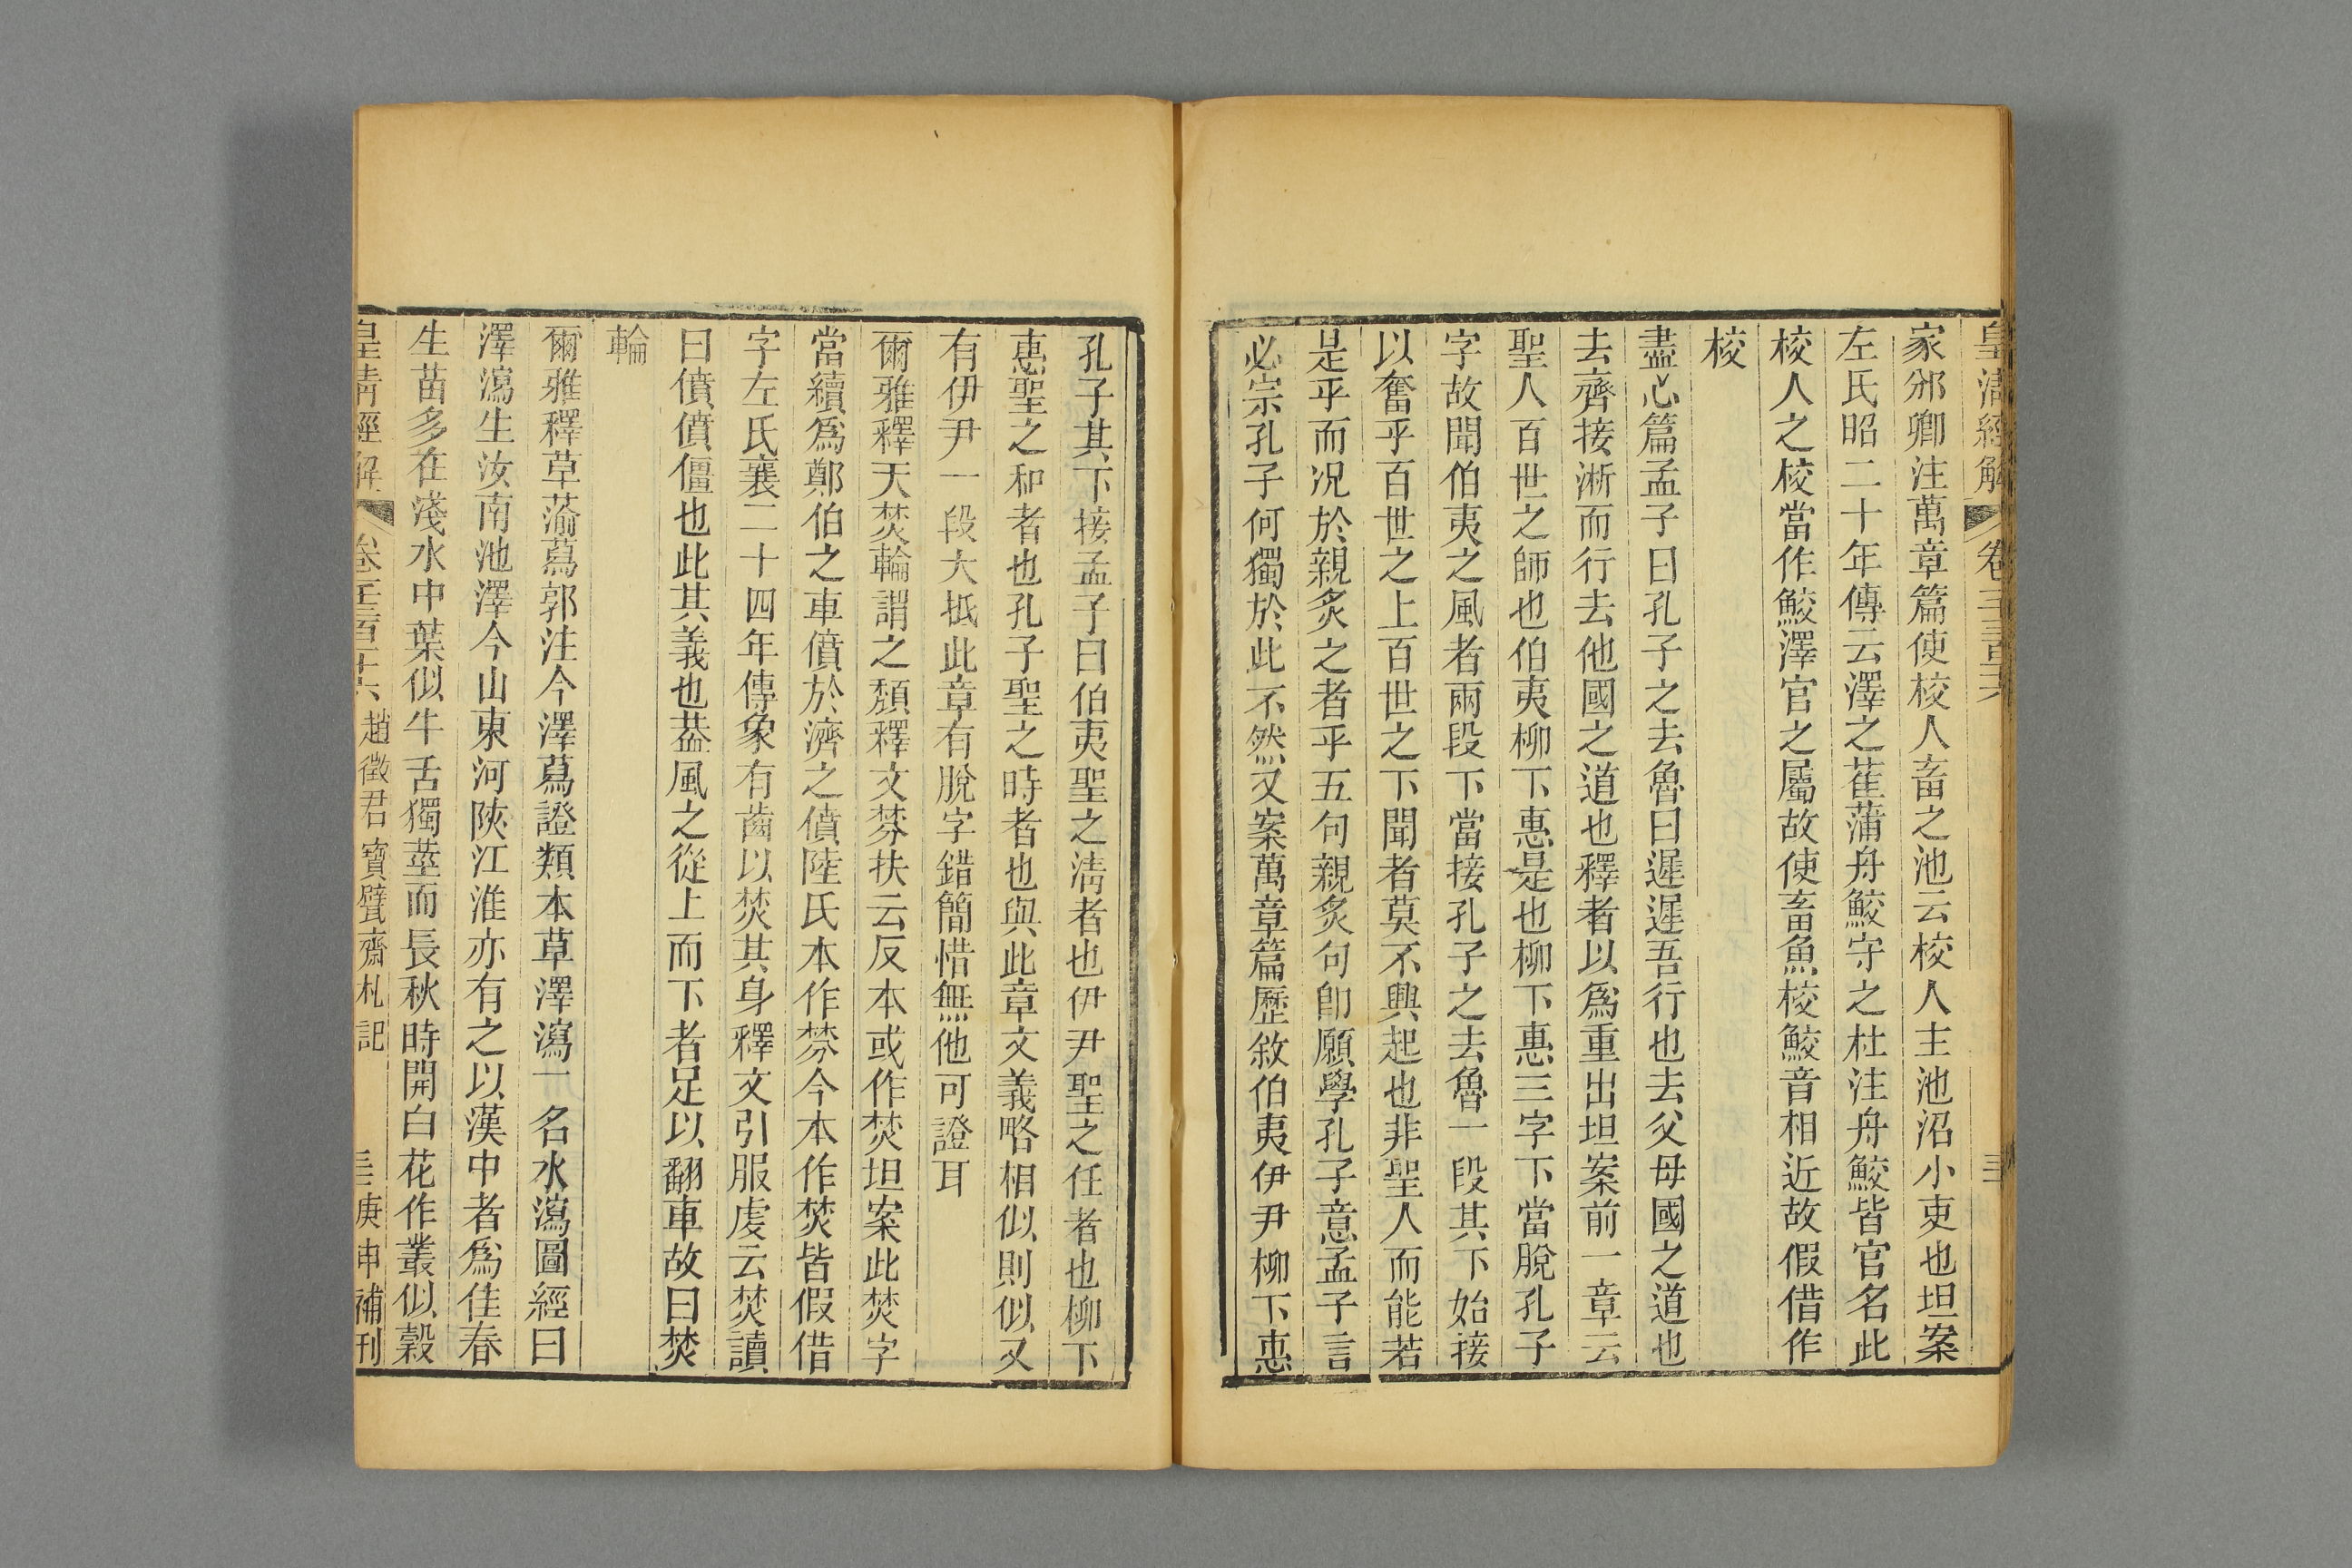 皇清經解 卷三百
家邠卿注萬章篇使校人畜之池云校人主池沼小吏也坦案
左氏昭二十年傳云澤之萑蒲舟鮫守之杜注舟鮫皆官名此
校人之校當作鮫澤官之屬故使畜魚校鮫音相近故假借作
校
盡心篇孟子曰孔子之去魯曰遲遲吾行也去父母國之道也
去齊接淅而行去他國之道也釋者以爲重出坦案前一章云
聖人百世之師也伯夷柳下惠是也柳下惠三字下當脫孔子
字故聞伯夷之風者兩段下當接孔子之去魯一段其下始接
以奮乎百世之上百世之下聞者莫不興起也非聖人而能若
是乎而况於親炙之者乎五句親炙句卽願學孔子意孟子言
必宗孔子何獨於此不然又案萬章篇歷敘伯夷伊尹柳下惠
孔子其下接孟子曰伯夷聖之淸者也伊尹聖之任者也柳下
惠聖之和者也孔子聖之時者也與此章文義略相似則似又
有伊尹一段大抵此章有脫字錯簡惜無他可證耳
爾雅釋天焚輪謂之頹釋文棼扶云反本或作焚坦案此焚字
當續爲鄭伯之車僨於濟之僨陸氏本作棼今本作焚皆假借
字左氏襄二十四年傳象有齒以焚其身釋文引服虔云焚讀
曰僨僨僵也此其義也葢風之從上而下者足以翻車故曰焚
輪
爾雅釋草蕍蕮郭注今澤蕮證類本草澤瀉一名水瀉圖經曰
澤瀉生汝南池澤今山東河陝江淮亦有之以漢中者爲佳春
生苗多在淺水中葉似牛舌獨莖而長秋時開白花作叢似穀
皇清經解 卷三百十六 趙徵君寶甓齋札記 庚申補刊